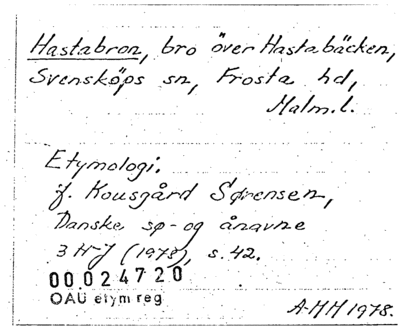 Hastabron, bro över Hastabäcken,
Svensköps sn, Frosta hd,
Malm.l.
Etymologi.
jf. Kousgård Sørensen,
Danske sø- og ånavne
3 H-J (1978), s. 42.
00.02472 0
OAU etym reg
A-MH 1978.